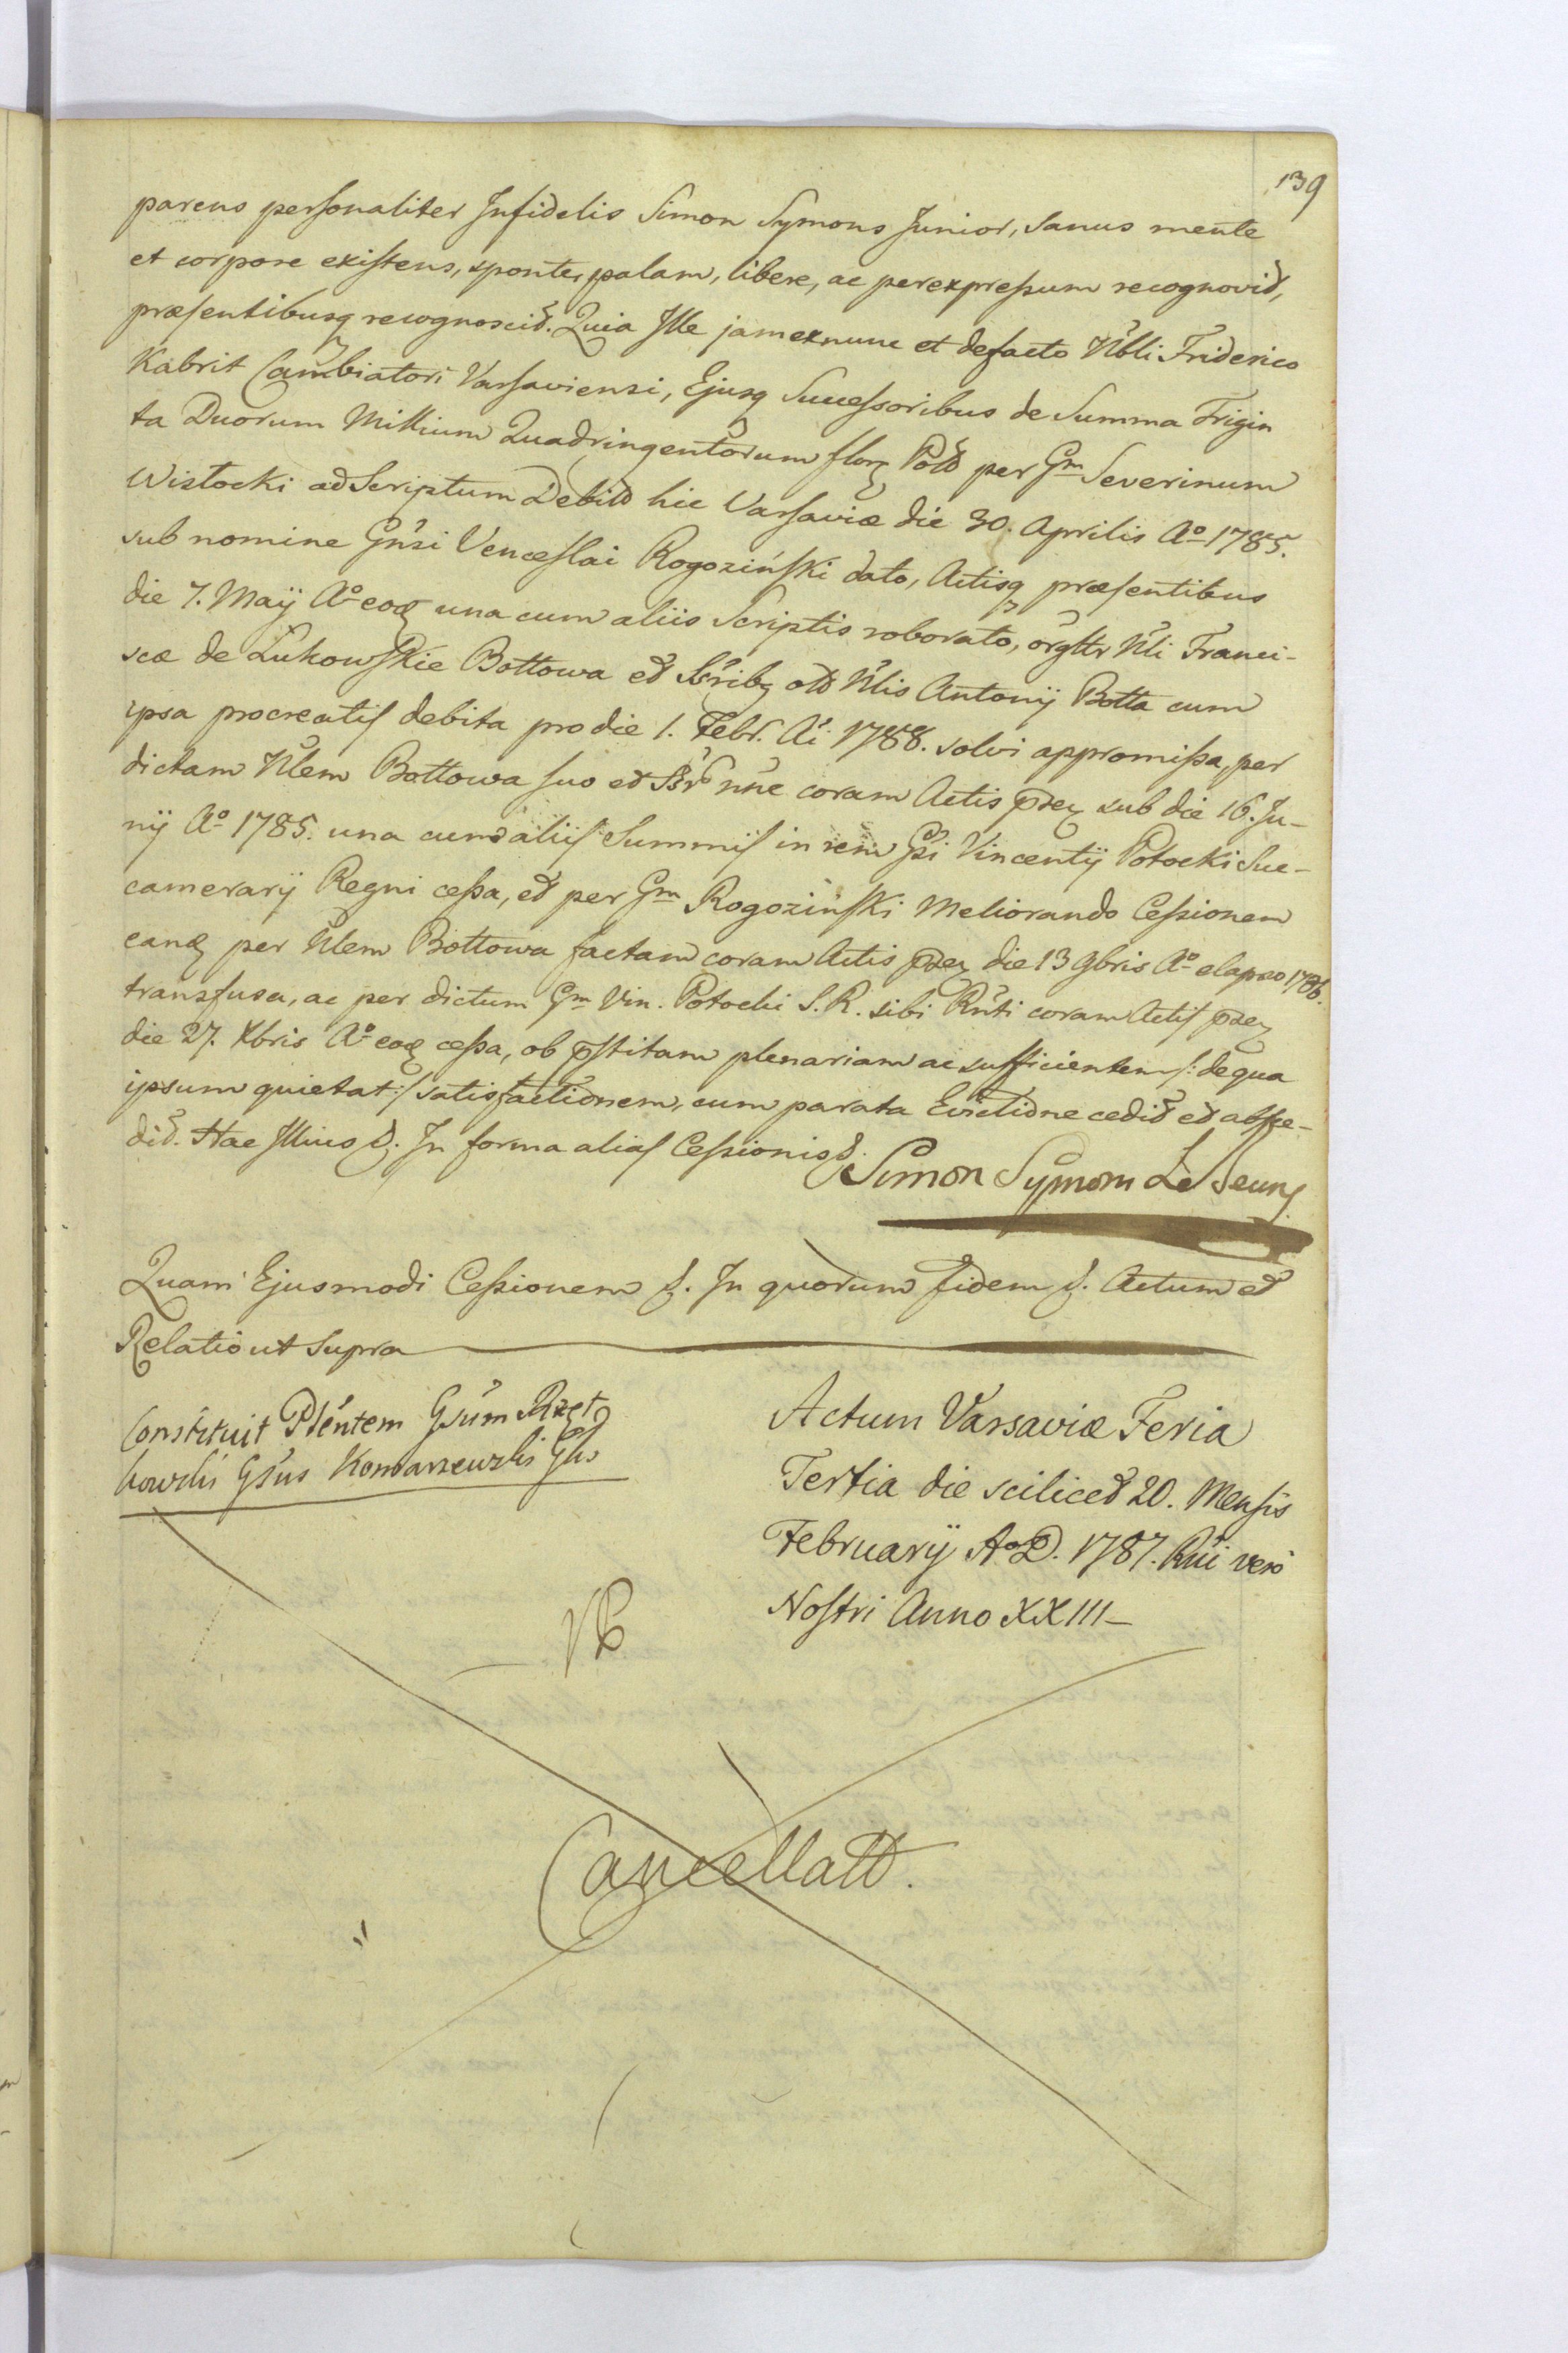 139
parens personaliter Infidelis Simon Symons Junior, Sanus mente
et corpore existens, sponte, palam, libere, ac perexpressum recognovit,
præsentibusq recognoscit. Quia Ille jamexnunc et defacto Nbli Friderico
Kabrit Cambiatori Varsaviensi, Ejusq Successoribus de Summa Trigin
ta Duorum Millium Quadringentorum flor Poll per Gm Severinum
Wistocki ad Scriptum Debiti hic Varsaviæ die 30. Aprilis Ao 1785.
sub nomine Gnsi Venceslai Rogoziński dato, Actisq præsentibus
die 7. Maij Ao eod una cum aliis Scriptis roborato, orgttr Nli Franci-
scæ de Lukowskie Bottowa et Ssribq olt Nlis Antonij Botta cum
ipsa procreatis debita pro die 1. Febr. Ai 1788. solvi appromissa, per
dictam Nlem Bottowa suo et nne coram Actis sub die 16. Ju-
nij Ao 1785. una cum aliis Summis in rem Gsi Vincentij Potocki Suc-
camerarij Regni cessa, et per Gm Rogoziński Meliorando Cessionem
eand per Nlem Bottowa factam coram Actis die 13 9bris Ao elapso 1786.
transfusa, ac per dictum Gm Vin. Potocki S. R. sibi Rnti coram Actis
die 27. Xbris Ao eod cessa, ob pstitam plenariam ac sufficientem /: de qua
ipsum quietat :/ satisfactionem, cum parata Evictione cedit et abscе-
dit. Hac Illius In forma alias Cessionis
Simon Symons Le Jeune
Quam Ejusmodi Cessionem In quorum fidem Actum et
Relatio ut Supra
Constituit Plentem Gsum Rzet
kowski Gsus Komarzewski
Actum Varsaviæ Feria
Tertia die scilicet 20. Mensis
Februarij A. D. 1787. Rni vero
Nostri Anno XXIII
Cancellatt.